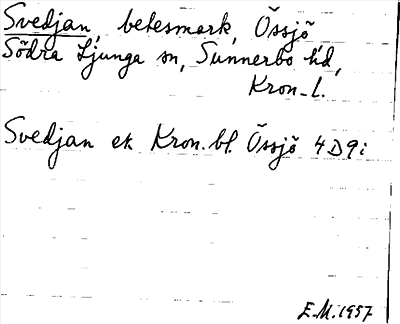 Svedjan, betesmark, Össjö
Södra Ljunga sn, Sunnerbo hd,
Kron. l.
Svedjan ek Kron. bl. Össjö 4D9i
E.M. 1957